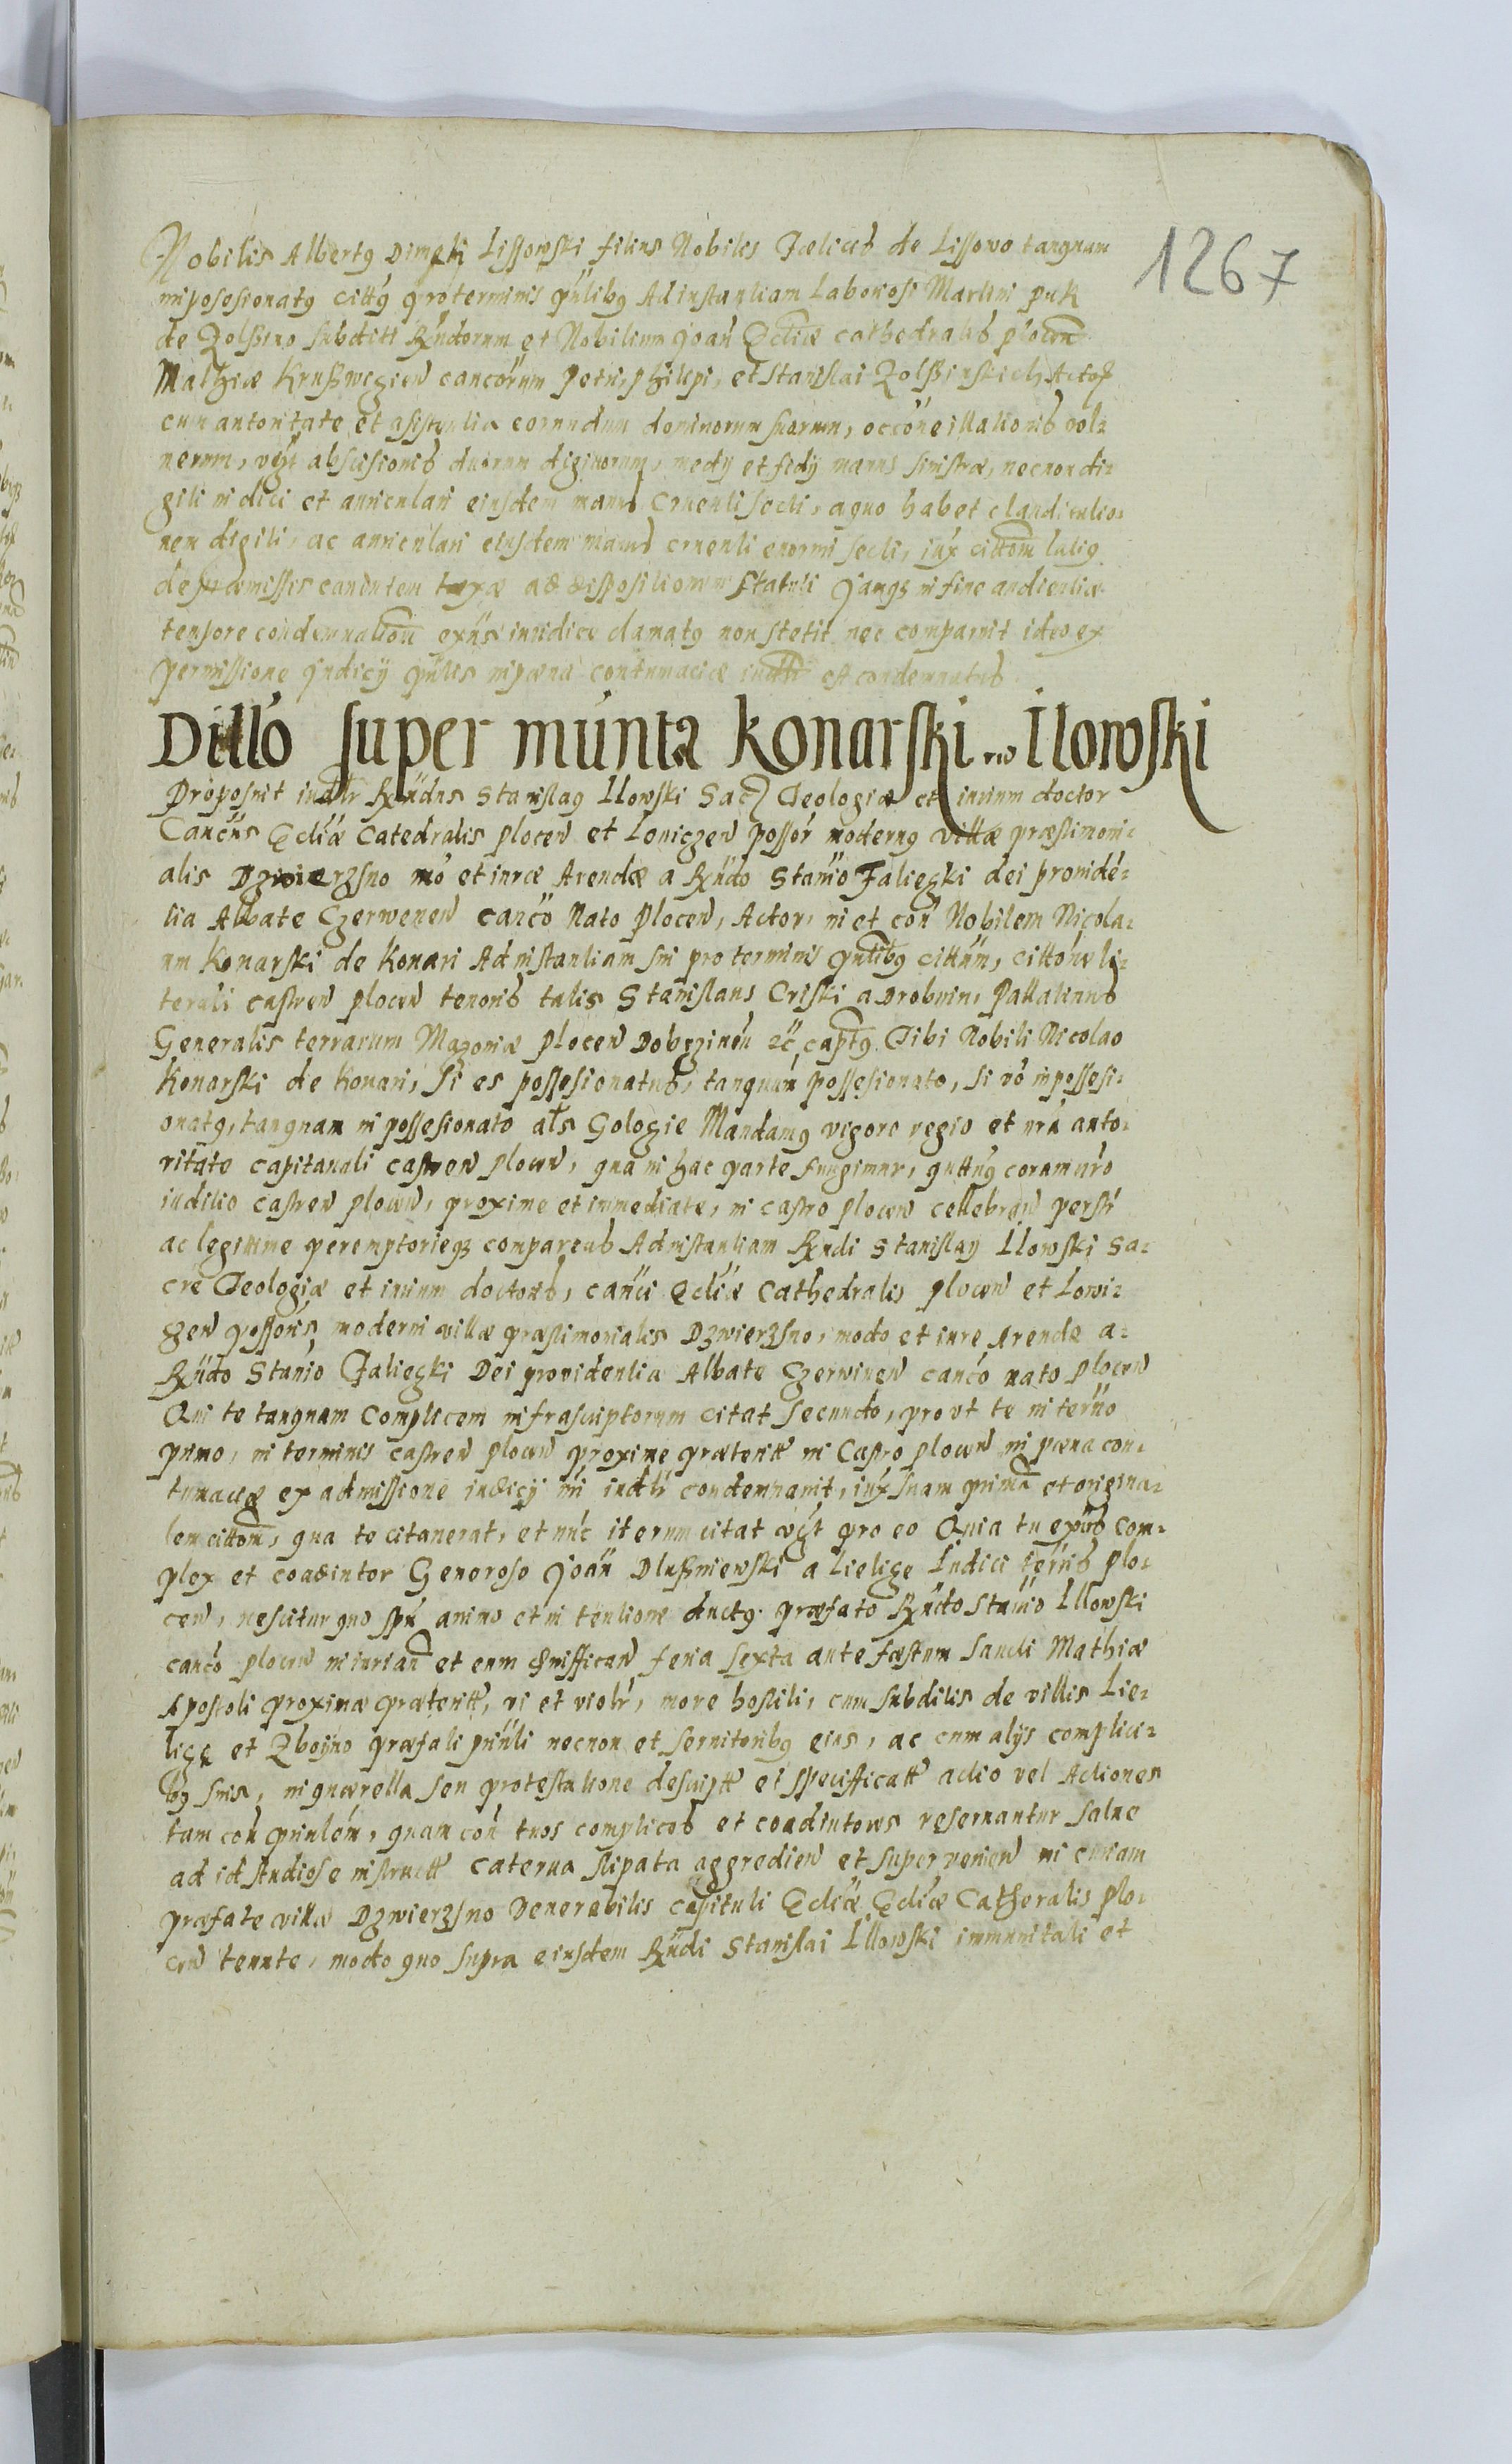 1267
Nobilis Albertꝯ Dimeki Lissowski filius Nobilis Fælicis de Lissovo tanquam
imposesionatꝯ cittꝯ pro terminis pn̄tibꝯ Ad instantiam Laboriosi Martini puk
de Zolßino subditi Rn̄dorum et Nobilium Joan̄ Ecclīæ cathedralis plocen̄
Mathiæ Krußwegien̄ canc̄orum Petri, philipi, et Stanislai Zolßinskich Actor
cum autoritate et asistentia eorundum dominorum suorum, occ̄one illationis vol⸗
nerum, vꝫt abscisionis duorum digitorum, medy et fedy manus sinistræ, necnon di⸗
giti indici et auriculari eiusdem manus cruenti secti, aquo habet claudicatio⸗
nem digiti, ac auriculari eiusdem manus cruenti enormi secti, iux cittōm latiꝯ
de præmissis canentem taxæ ad dispositionem Statuti Jamqꝫ in fine audientiæ
tensore condemnation̄ exn̄s iuridice clamatꝯ non stetit nec comparuit ideo ex
permissione Judicy pn̄tis in pæna contumaciæ iudtr est condemnatus
Dillo super munta Konarski rō Ilowski
Proposuit iudtr Rn̄dus Stanislaꝯ Ilowski Sac Teologiæ et iurium doctor
Canc̄us Ecclīæ Catedralis plocen̄ et Loniczen̄ possor modernꝯ villæ præstimoni⸗
alis Dzwierzsno mō et iuræ Arendæ a Rn̄do Stan̄io Falieczki dei provide⸗
tia Abbate Czerwenen̄ canc̄o Nato plocen̄, Actor, in et con̄ Nobilem Nicola⸗
um Konarski de Konari Ad instantiam sui pro terminis pn̄tibꝯ cittum, cittōne li⸗
terali castren̄ plocen̄ tenoris talis Stanislaus Criski a Drobnin, Pallatinus
Generalis terrarum Mazoviæ plocen̄ Dobrzinen̄ ꝛc̄ captꝯ Tibi Nobili Nicolao
Konarski de Konari, Si es possesionatus, tanquam possesionato, si vō inpossesi⸗
onatꝯ, tanquam inpossesionato als Gologie Mandamꝯ vigore regio et nrā auto⸗
ritate capitanali castren̄ plocen̄, qua in hac parte fungimur, quttnꝯ coram nrō
iuditio castren̄ plocen̄, proxime et inmediate, in castro plocen̄ cellebran̄ perstr
ac legittime peremptorieqꝫ compareas Ad instantiam Rn̄di Stanislay Ilowski Sa⸗
cre Teologiæ et iurium doctoris, canc̄i Ecclīæ Cathedralis plocen̄ et Lowi⸗
czen̄ possoris moderni villæ præstimonialis Dzwierzsno, modo et iure Arende a⸗
Rn̄do Stan̄io Falieczki Dei providentia Abbate Czerwinen̄ canc̄o nato plocen̄
Qui te tanquam Complicem infrascriptorum citat secundo, prout te in ter̄no
primo, in terminis castren̄ plocen̄ proxime præteritt in Castro plocen̄ in pæna con⸗
tumaciæ ex admissione iudicy nri iudtr condemnavit, iux suam prima et origina⸗
lem cittōm, qua te citanerat, et nūc iterum citat vꝫt pro eo Quia tu exn̄s com⸗
plex et coadiutor Generoso Joan̄ Dlußniewski a Lielicze Iudici terris plo⸗
cen̄, nescitur quo spū animo et intentione ductꝯ præfato Rn̄do Stan̄io Ilowski
canc̄o plocen̄ iniurian̄ et eum dāmifican̄ feria sexta ante fæstum Sancti Mathiæ
Apostoli proximæ præteritt, vi et violtr, more hostili, cum subditis de villis Lie⸗
licze et Zboyno præfati prin̄li necnon et servitoribꝯ eius, ac cum alys complici⸗
bꝯ suis, in quærella seu protestatione descriptt et specifficatt actio vel Actiones
tam con̄ prin̄lem, quam con̄ tuos complices et coadiutores reservantur salve
ad id studiose instructt caterva stipata aggredien̄ et supervenien̄ in curiam
præfate villæ Dzwierzsno Venerabilis capituli Ecclīæ Ecclīæ Catheralis plo⸗
cen̄ tennte, modo quo supra eiusdem Rn̄di Stanislai Illowski immunitati et